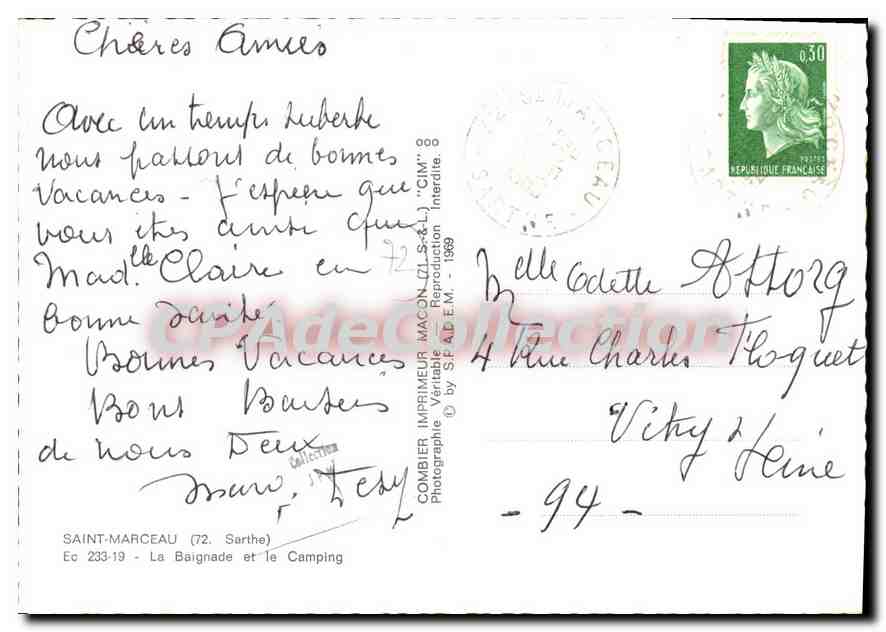 Chères Amies
Avec un temps superbe
nous passons de bonnes
vacances - J'espère que
vous êtes ainsi que
Mad.lle Claire en
bonne santé
Bonnes Vacances
Bons Baisers
de nous Deux
Collection
SAINT-MARCEAU (72. Sarthe)
Ec 233-19 - La Baignade et le Camping
72
COMBIER IMPRIMEUR MACON (71. S.-&-L.) "CIM"
Photographie Véritable — Reproduction Interdite.
© by S.P.A.D.E.M. - 1969
CPAdeCollection
72 ST MARCEAU
SARTHE
0,30
POSTES
REPUBLIQUE FRANÇAISE
Melle Odette Astorg
4 Rue Charles Floquet
Vitry s/
Seine
- 94 -